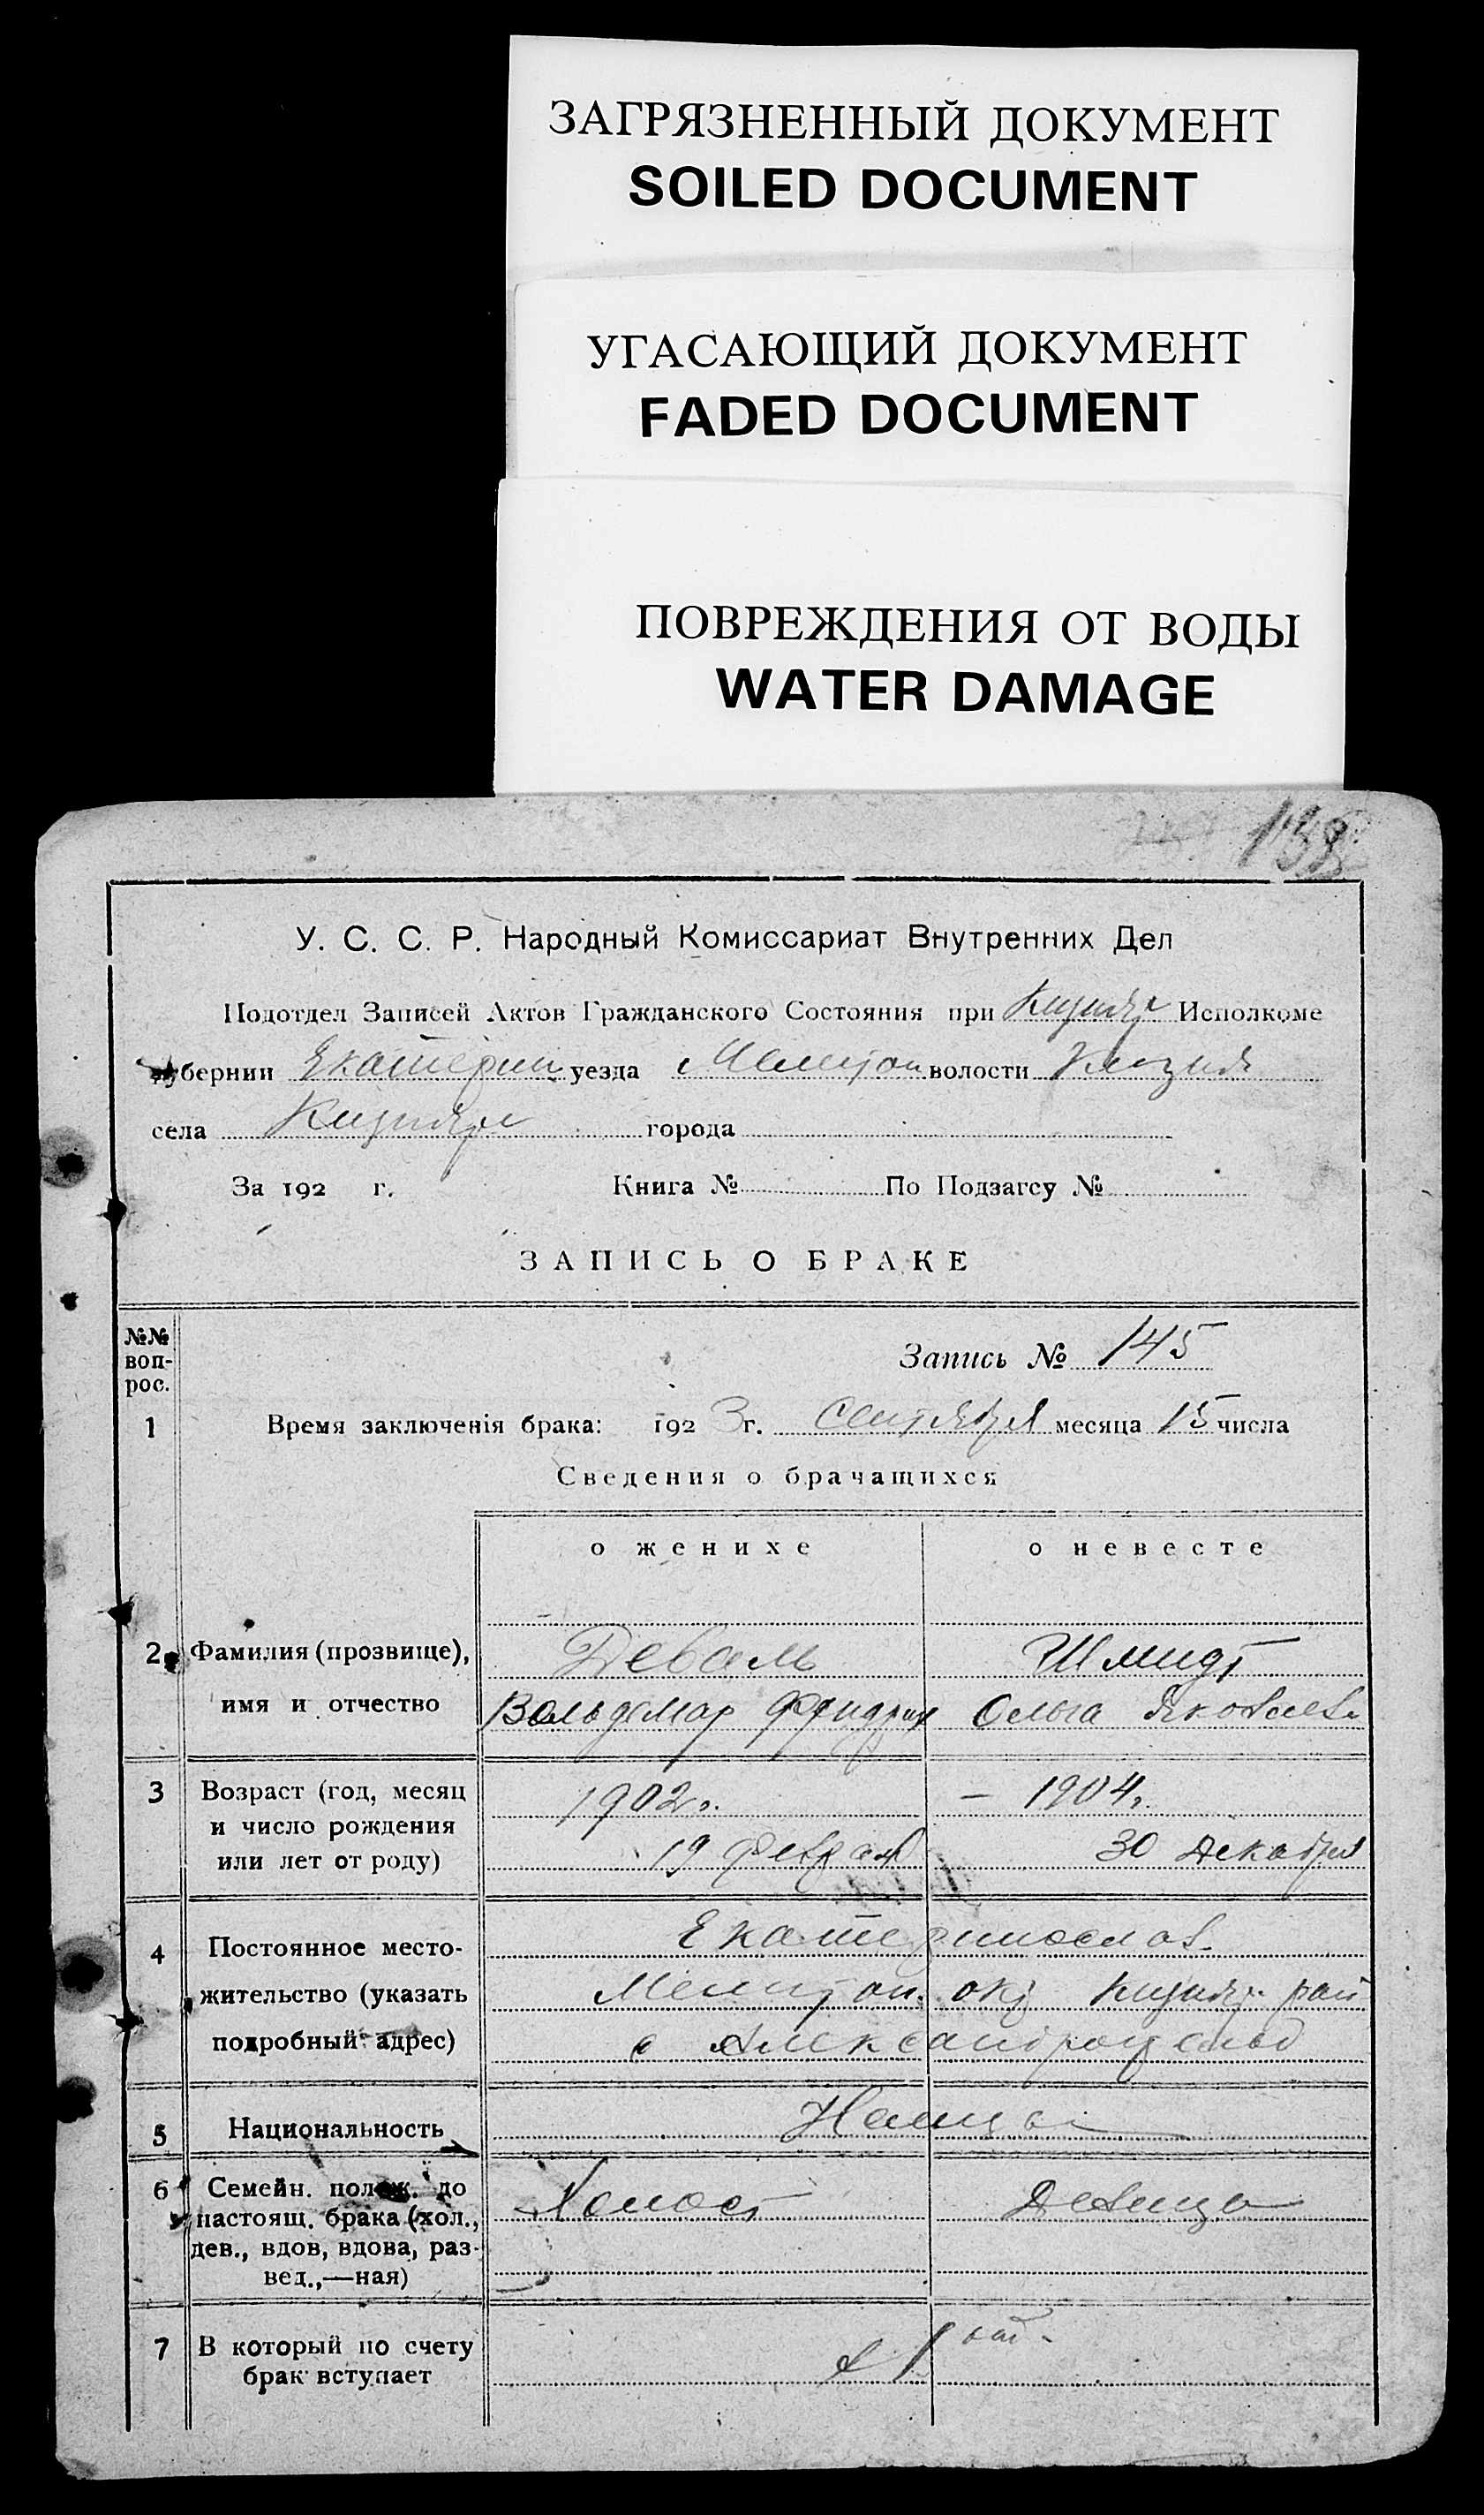 ЗАГРЯЗНЕННЫЙ ДОКУМЕНТ
SOILED DOCUMENT
УГАСАЮЩИЙ ДОКУМЕНТ
FADED DOCUMENT
ПОВРЕЖДЕНИЯ ОТ ВОДЫ
WATER DAMAGE
У. С. С. Р. Народный Комиссариат Внутренних Дел
Подотдел Записей Актов Гражданского Состояния при Кизияр Исполкоме
губернии Екатерин уезда Мелитоп волости Кизияр
села Кизияр города
За 192 г. Книга № По Подзагсу №
ЗАПИСЬ О БРАКЕ
№№ воп-рос.
Запись № 145
1 Время заключенія брака: 1923 г. Сентября месяца 15 числа
Сведения о брачащихся
о женихе о невесте
2 Фамилия (прозвище), Деваль Шмидт
имя и отчество Вольдемар Фридрих Ольга Яковлев.
3 Возраст (год, месяц 1902г. – 1904г.
и число рождения
или лет от роду) 19 феврал 30 декабря
Екатеринослав.
4 Постоянное место-
жительство (указать Мелитоп. окр Кизияр. рай
подробный адрес) с Александрофельд
5 Национальность Немцы
6 Семейн. полож. до
настоящ. брака (хол., Холост Девица
дев., вдов, вдова, раз-
вед.,—ная)
7 В который по счету
брак вступает